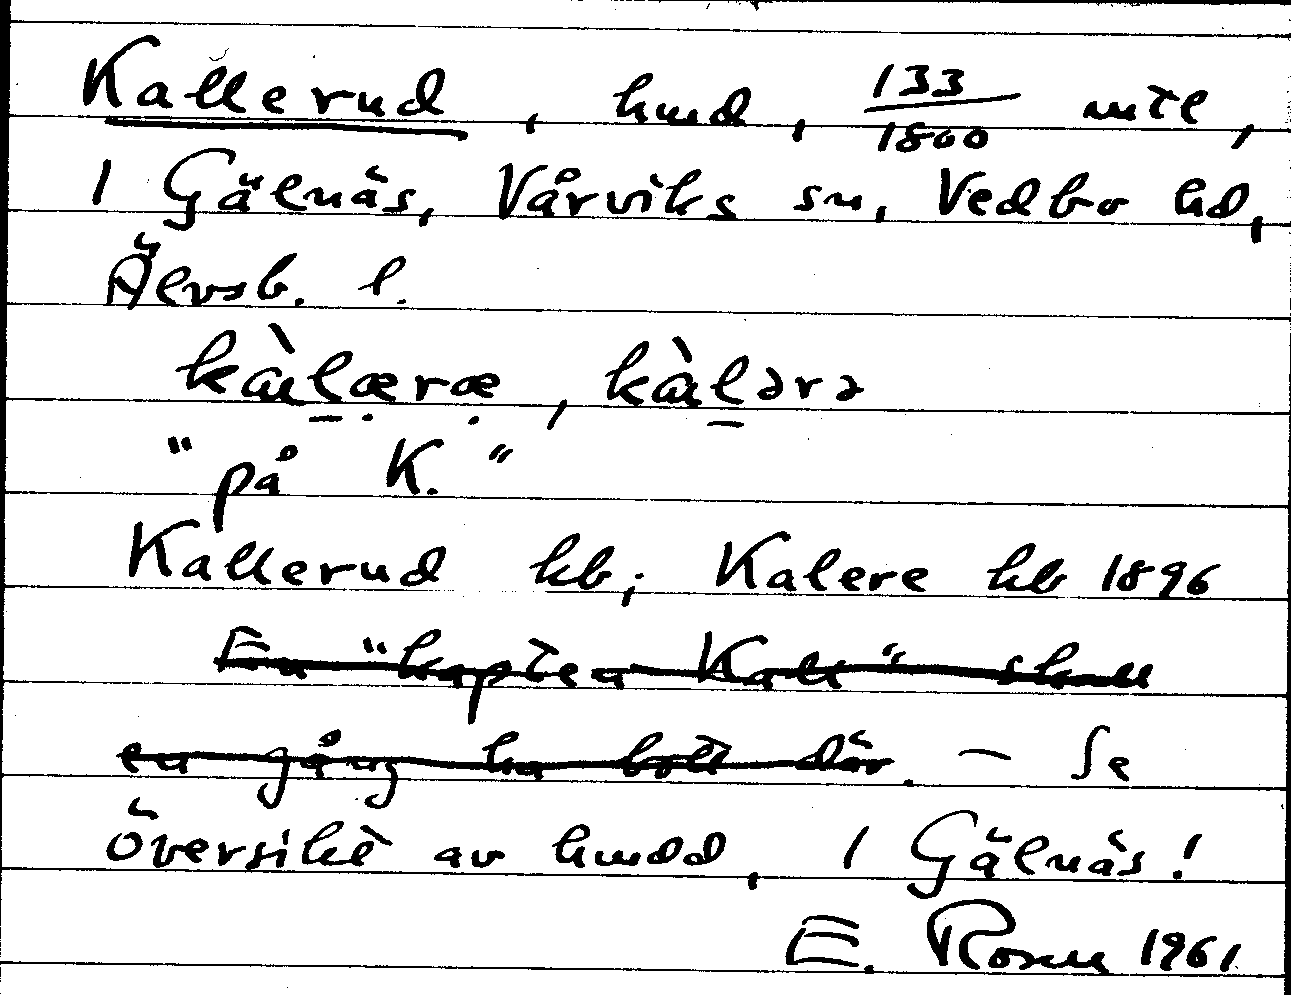 Kallerud, hmd, 133/1800 mtl,
1 Gälnäs, Vårviks sn, Vedbo hd,
Älvsb. l.
kàl̠æ̣ræ̣, kàl̠ərə
"på K."
Kallerud kb; Kalere hb 1896
En "kapten Kall" skall
en gång ha bott där. – Se
översikt av hmdd, 1 Gälnäs!
E. Rosen 1961